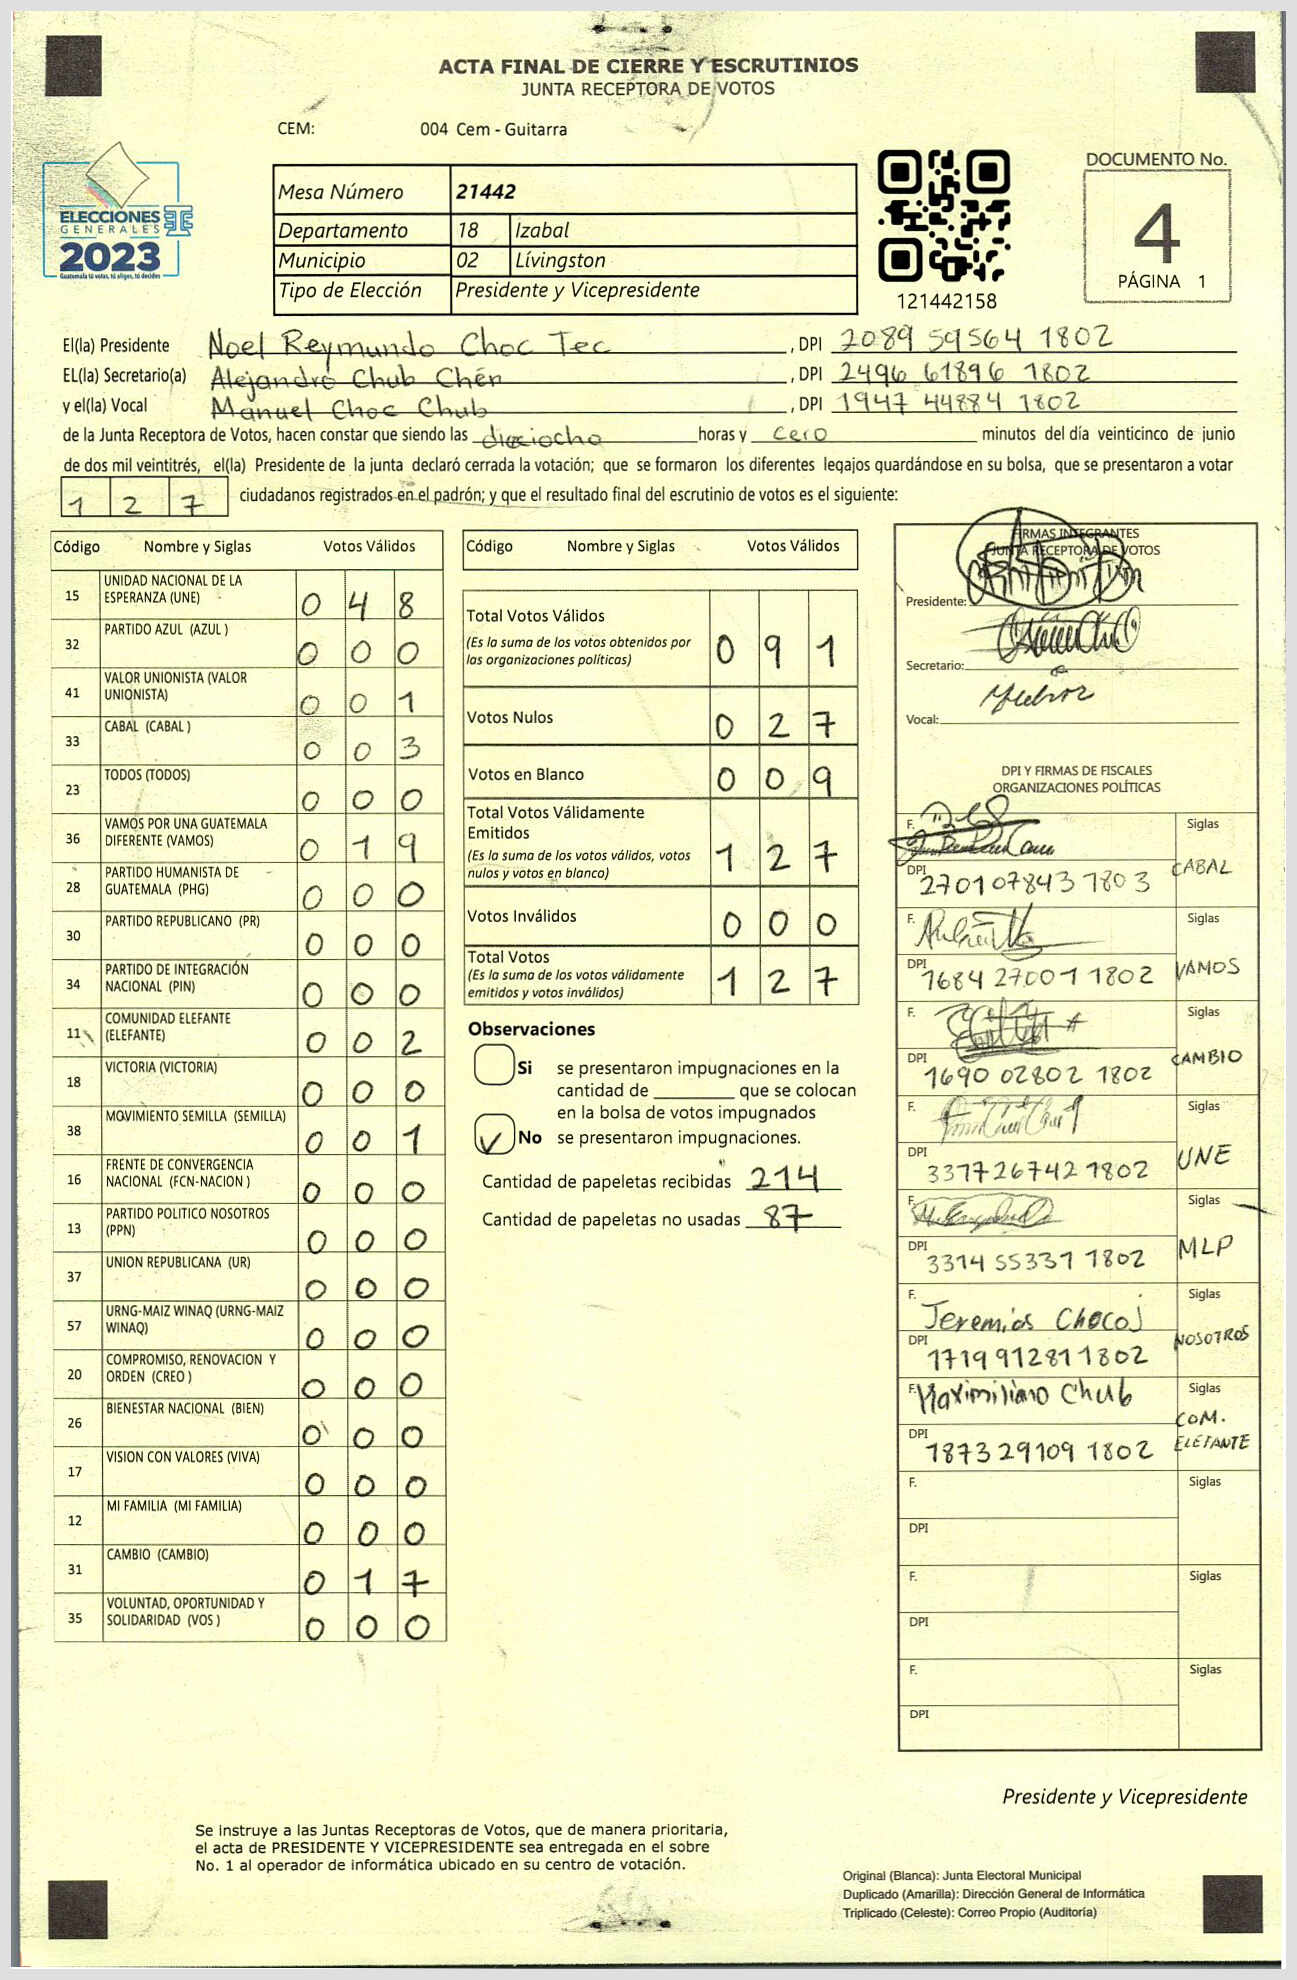 ACTA FINAL DE CIERRE Y ESCRUTINIOS
JUNTA RECEPTORA DE VOTOS
CEM: 004 Cem - Guitarra
ELECCIONES
GENERALES
2023
Guatemala tú votas, tú eliges, tú decides
Mesa Número 21442
Departamento 18 Izabal
Municipio 02 Lívingston
Tipo de Elección Presidente y Vicepresidente
121442158
DOCUMENTO No.
4
PÁGINA 1
El(la) Presidente Noel Reymundo Choc Tec, DPI 2089 59564 1802
EL(la) Secretario(a) Alejandro Chub Chén, DPI 2496 61896 1802
y el(la) Vocal Manuel Choc Chub, DPI 1947 44884 1802
de la Junta Receptora de Votos, hacen constar que siendo las dieciocho horas y cero minutos del día veinticinco de junio
de dos mil veintitrés, el(la) Presidente de la junta declaró cerrada la votación; que se formaron los diferentes legajos guardándose en su bolsa, que se presentaron a votar
1 2 7 ciudadanos registrados en el padrón; y que el resultado final del escrutinio de votos es el siguiente:
Código Nombre y Siglas Votos Válidos
15 UNIDAD NACIONAL DE LA ESPERANZA (UNE) 0 4 8
32 PARTIDO AZUL (AZUL ) 0 0 0
41 VALOR UNIONISTA (VALOR UNIONISTA) 0 0 1
33 CABAL (CABAL ) 0 0 3
23 TODOS (TODOS) 0 0 0
36 VAMOS POR UNA GUATEMALA DIFERENTE (VAMOS) 0 1 9
28 PARTIDO HUMANISTA DE GUATEMALA (PHG) 0 0 0
30 PARTIDO REPUBLICANO (PR) 0 0 0
34 PARTIDO DE INTEGRACIÓN NACIONAL (PIN) 0 0 0
11 COMUNIDAD ELEFANTE (ELEFANTE) 0 0 2
18 VICTORIA (VICTORIA) 0 0 0
38 MOVIMIENTO SEMILLA (SEMILLA) 0 0 1
16 FRENTE DE CONVERGENCIA NACIONAL (FCN-NACION ) 0 0 0
13 PARTIDO POLITICO NOSOTROS (PPN) 0 0 0
37 UNION REPUBLICANA (UR) 0 0 0
57 URNG-MAIZ WINAQ (URNG-MAIZ WINAQ) 0 0 0
20 COMPROMISO, RENOVACION Y ORDEN (CREO ) 0 0 0
26 BIENESTAR NACIONAL (BIEN) 0 0 0
17 VISION CON VALORES (VIVA) 0 0 0
12 MI FAMILIA (MI FAMILIA) 0 0 0
31 CAMBIO (CAMBIO) 0 1 7
35 VOLUNTAD, OPORTUNIDAD Y SOLIDARIDAD (VOS ) 0 0 0
Código Nombre y Siglas Votos Válidos
Total Votos Válidos
(Es la suma de los votos obtenidos por
las organizaciones políticas) 0 9 1
Votos Nulos 0 2 7
Votos en Blanco 0 0 9
Total Votos Válidamente
Emitidos
(Es la suma de los votos válidos, votos
nulos y votos en blanco) 1 2 7
Votos Inválidos 0 0 0
Total Votos
(Es la suma de los votos válidamente
emitidos y votos inválidos) 1 2 7
Observaciones
Si se presentaron impugnaciones en la
cantidad de ________ que se colocan
en la bolsa de votos impugnados
No se presentaron impugnaciones.
Cantidad de papeletas recibidas 214
Cantidad de papeletas no usadas 87
FIRMAS INTEGRANTES
JUNTA RECEPTORA DE VOTOS
Presidente:
Secretario:
Vocal:
DPI Y FIRMAS DE FISCALES
ORGANIZACIONES POLÍTICAS
F. Siglas
DPI 270107843 1803 CABAL
F. Siglas
DPI 1684 27001 1802 VAMOS
F. Siglas
DPI 1690 02802 1802 CAMBIO
F. Siglas
DPI 3317 26742 1802 UNE
F. Siglas
DPI 3314 55331 1802 MLP
F. Jeremias Chocoj Siglas
DPI 1719 91281 1802 NOSOTROS
F. Maximiliano Chub Siglas
DPI 1873 29109 1802 COM. ELEFANTE
F. Siglas
DPI
F. Siglas
DPI
F. Siglas
DPI
Presidente y Vicepresidente
Se instruye a las Juntas Receptoras de Votos, que de manera prioritaria,
el acta de PRESIDENTE Y VICEPRESIDENTE sea entregada en el sobre
No. 1 al operador de informática ubicado en su centro de votación.
Original (Blanca): Junta Electoral Municipal
Duplicado (Amarilla): Dirección General de Informática
Triplicado (Celeste): Correo Propio (Auditoría)